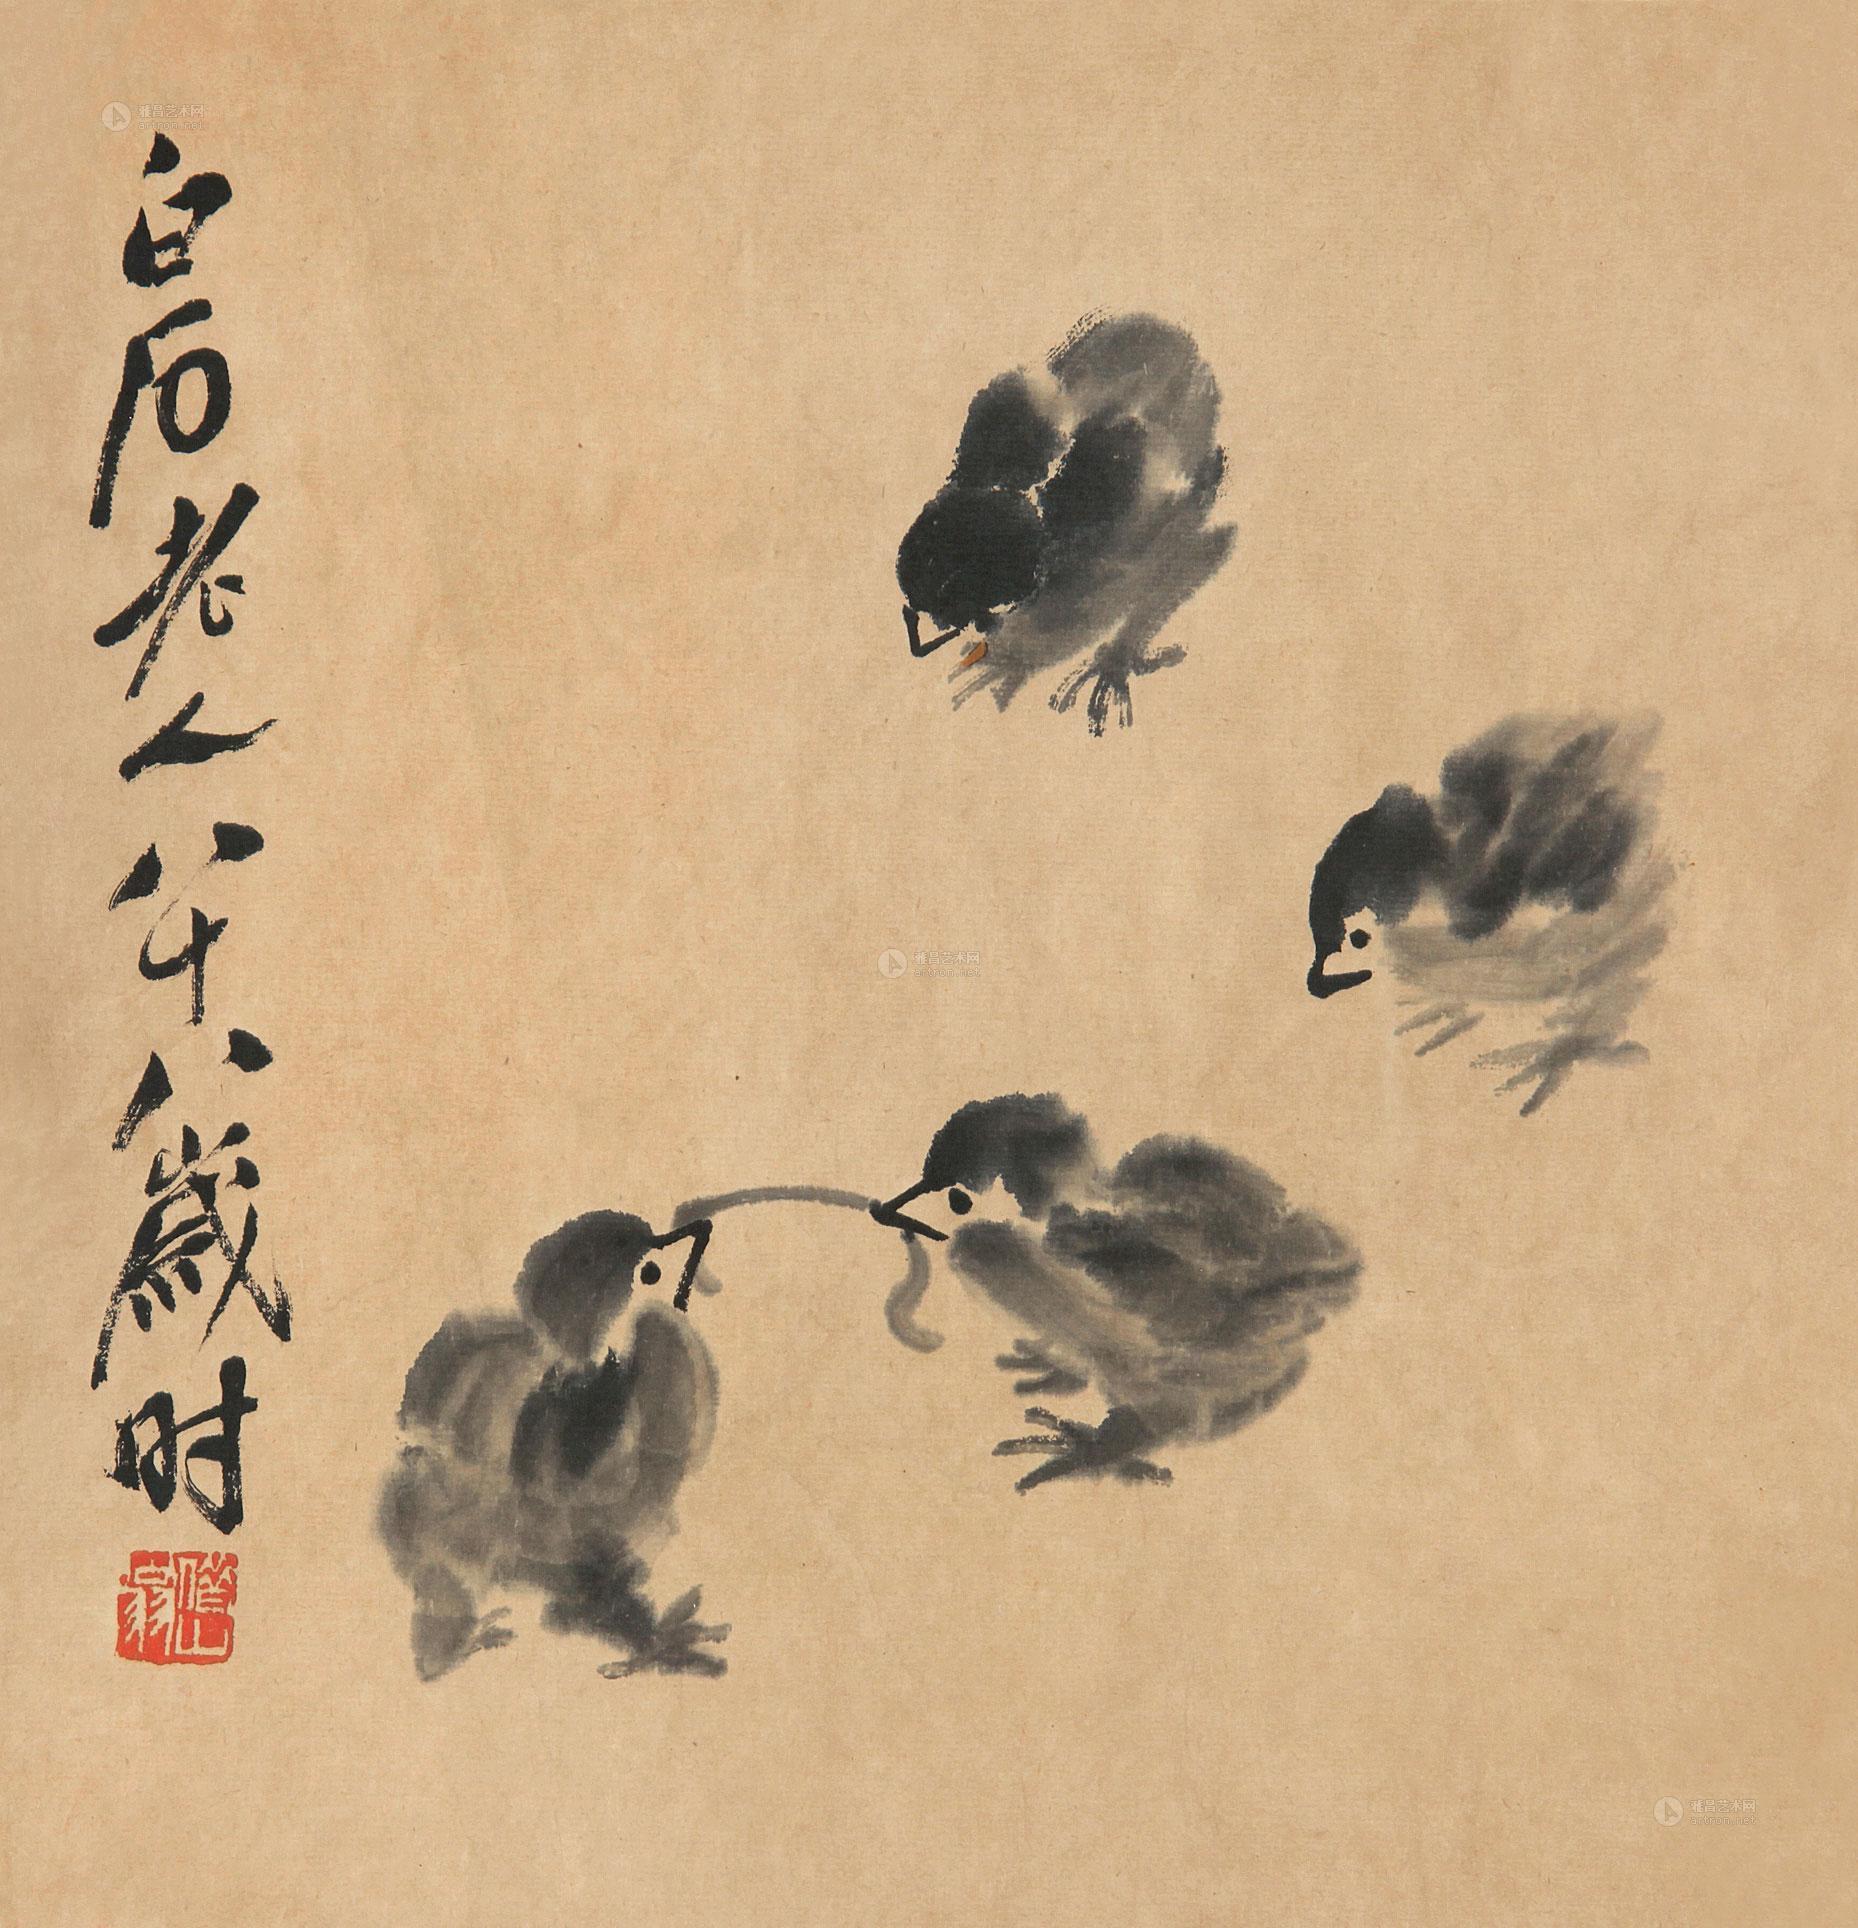 白石老人八十八歲时
借山翁
雅昌艺术网
artron.net
雅昌艺术网
artron.net
雅昌艺术网
artron.net